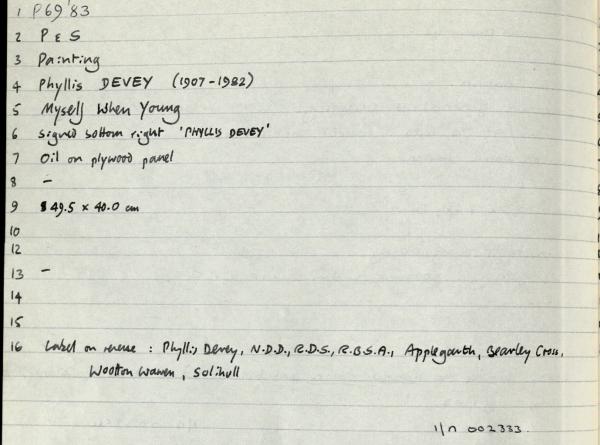 1 P69'83
2 P & S
3 Painting
4 Phyllis DEVEY (1907-1982)
5 Myself When Young
6 signed bottom right 'PHYLLIS DEVEY'
7 Oil on plywood panel
8 -
9 49.5 x 40.0 cm
10
12
13 -
14
15
16 Label on reverse : Phyllis Devey, N.D.D., R.D.S., R.B.S.A., Applegarth, Bearley Cross,
Wootton Wawen, Solihull
1/n 002333.